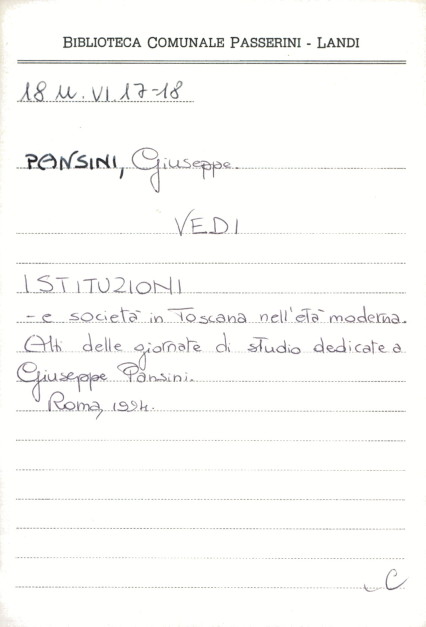 BIBLIOTECA COMUNALE PASSERINI - LANDI
18 U. VI. 17-18
PANSINI, Giuseppe.
VEDI
ISTITUZIONI
- e società in Toscana nell'età moderna.
Atti delle giornate di studio dedicate a
Giuseppe Pansini.
Roma, 1994.
C